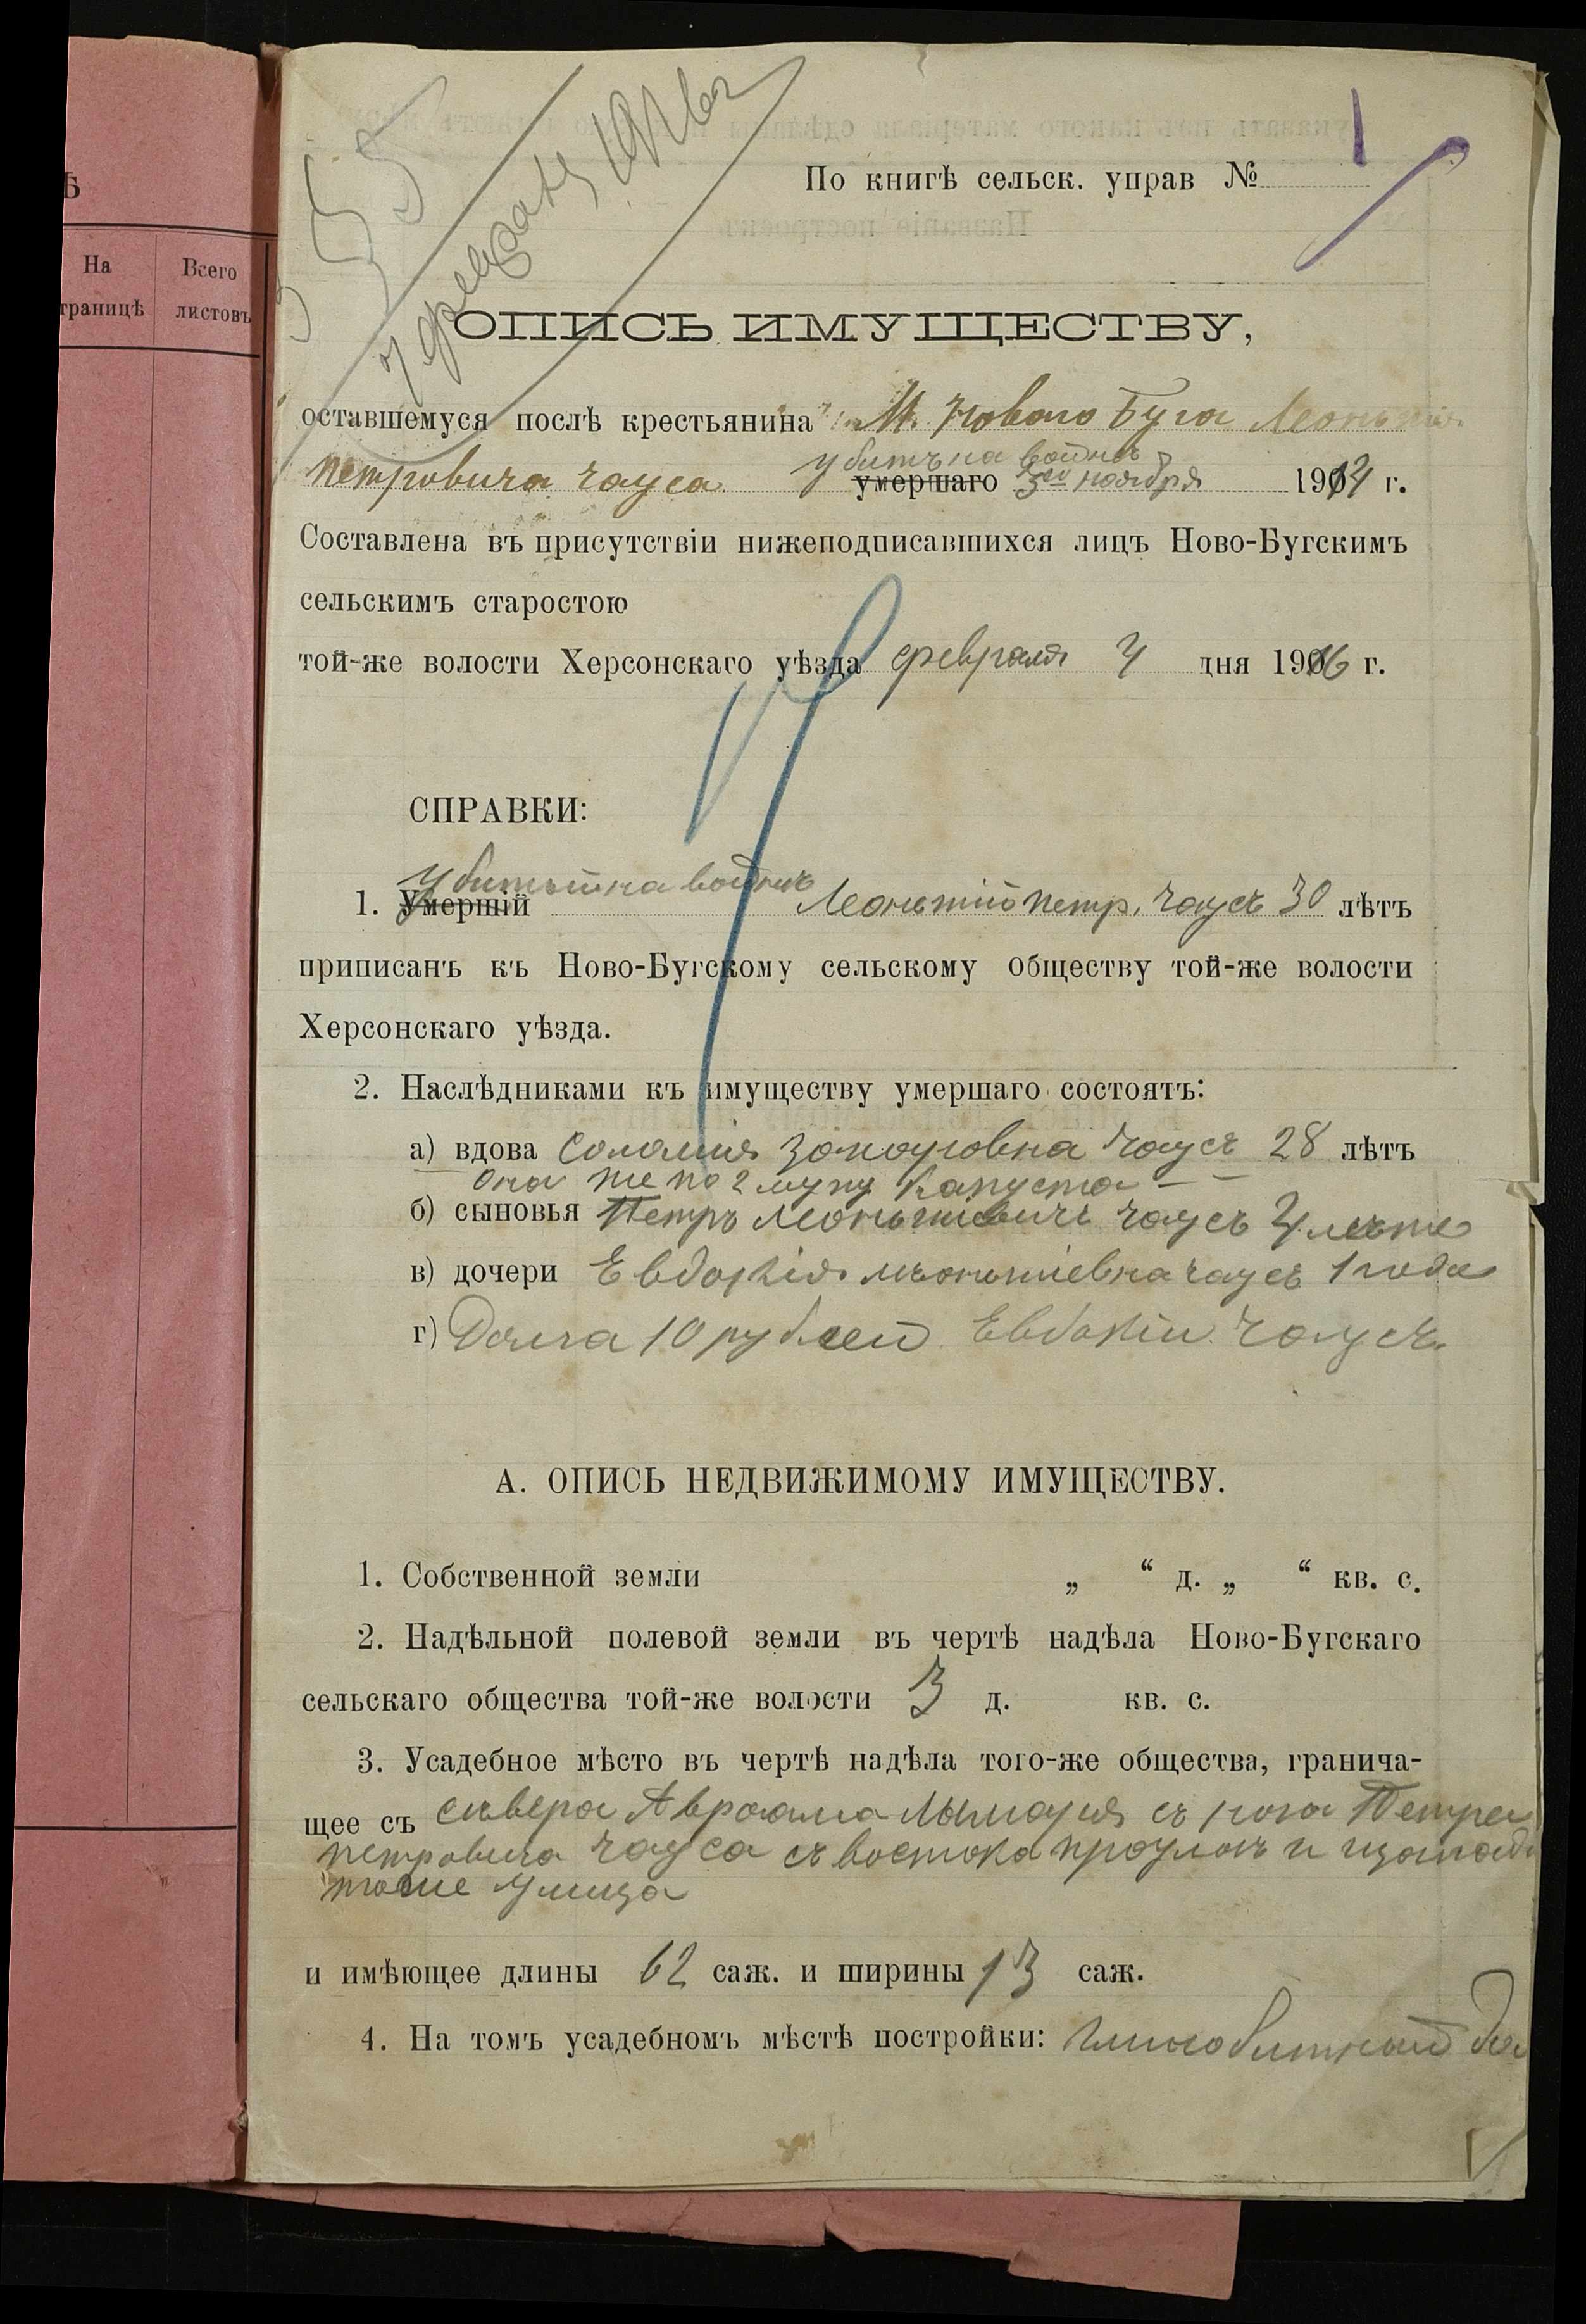 Ѣ
На
Всего
границѣ
листовъ
7 февраля 1916 г
По книгѣ сельск. управ № 1
ОПИСЬ ИМУЩЕСТВУ,
оставшемуся послѣ крестьянина М. Новаго Буга Леонтія
Петровича Чауса убитъ на войнѣ умершаго 3го ноября 1914 г.
Составлена въ присутствіи нижеподписавшихся лицъ Ново-Бугскимъ
сельскимъ старостою
той-же волости Херсонскаго уѣзда февраля 7 дня 1916 г.
СПРАВКИ:
убитый на войнѣ
1. Умершій Леонтій Петр. Чаусъ 30 лѣтъ
приписанъ къ Ново-Бугскому сельскому обществу той-же волости
Херсонскаго уѣзда.
2. Наслѣдниками къ имуществу умершаго состоятъ:
а) вдова Соломія Чаусъ 28 лѣтъ
Она же по 2 мужу Капуста
б) сыновья Петръ Леонтіевичъ Чаусъ лѣтъ
в) дочери Евдокія Леонтіевна Чаусъ 1 года
г) Долга 10 рублей Евдокіи Чаусъ.
А. ОПИСЬ НЕДВИЖИМОМУ ИМУЩЕСТВУ.
1. Собственной земли „ “ д. „ “ кв. с.
2. Надѣльной полевой земли въ чертѣ надѣла Ново-Бугскаго
сельскаго общества той-же волости 3 д. кв. с.
3. Усадебное мѣсто въ чертѣ надѣла того-же общества, гранича-
щее съ сѣвера Авраама Лымаря съ юга Петра
Петровича Чауса съ востока проулокъ и
тоже улица
и имѣющее длины 62 саж. и ширины 13 саж.
4. На томъ усадебномъ мѣстѣ постройки: Глинобитный до